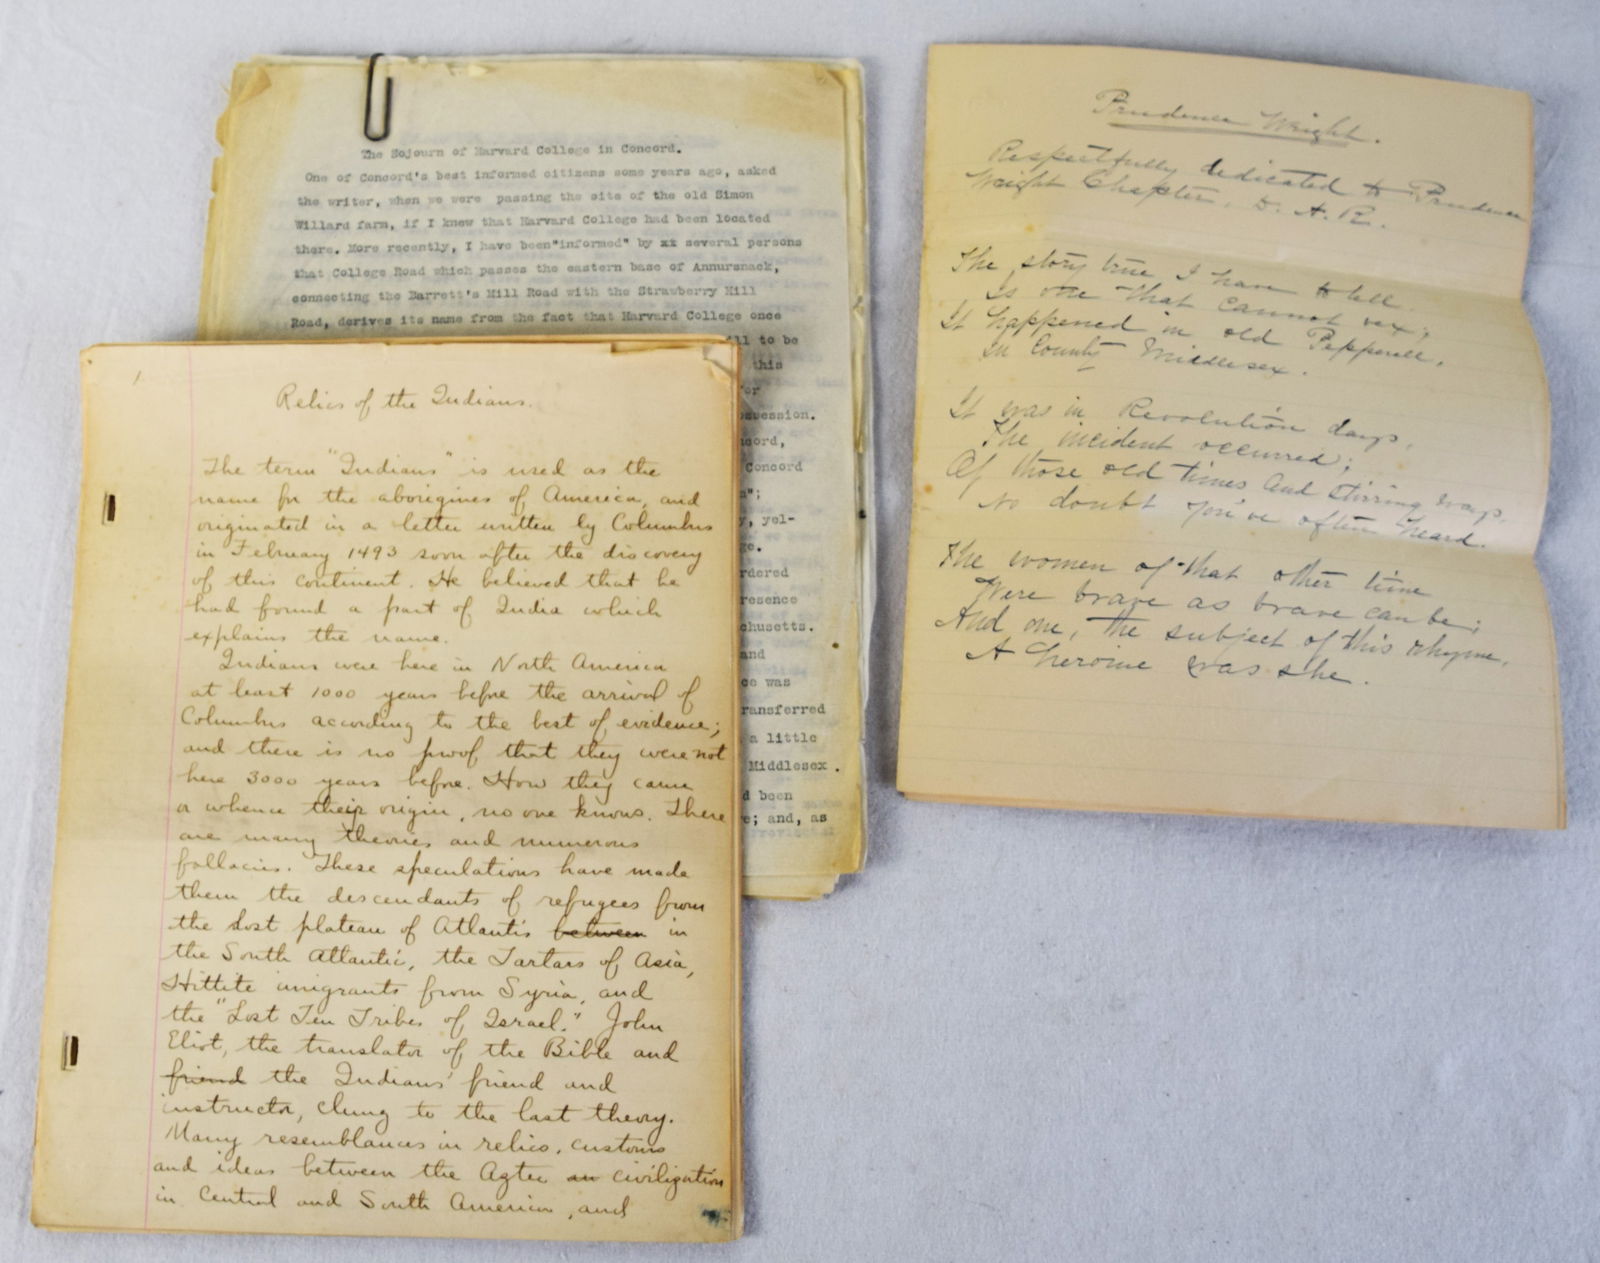 The Sojourn of Harvard College in Concord.
One of Concord's best informed citizens some years ago, asked
the writer, when we were passing the site of the old Simon
Willard farm, if I knew that Harvard College had been located
there. More recently, I have been"informed" by xx several persons
that College Road which passes the eastern base of Annursnack,
connecting the Barrett's Mill Road with the Strawberry Hill
Road, derives its name from the fact that Harvard College once
ll to be
this
or
session.
cord,
Concord
n";
y, yel-
ge.
rdered
resence
chusetts.
and
ce was
ransferred
a little
Middlesex.
d been
e; and, as
1
Relics of the Indians.
The term "Indians" is used as the
name for the aborigines of America, and
originated in a letter written by Columbus
in February 1493 soon after the discovery
of this continent. He believed that he
had found a part of India which
explains the name.
Indians were here in North America
at least 1000 years before the arrival of
Columbus according to the best of evidence;
and there is no proof that they were not
here 3000 years before. How they came
or whence their origin, no one knows. There
are many theories and numerous
fallacies. These speculations have made
them the descendants of refugees from
the Lost plateau of Atlantis between in
the South Atlantic, the Tartars of Asia,
Hittite imigrants from Syria, and
the "Lost Ten Tribes of Israel." John
Eliot, the translator of the Bible and
friend the Indians' friend and
instructor, clung to the last theory.
Many resemblances in relics, customs
and ideas between the Aztec an civilization
in Central and South America, and
Prudence Wright.
Respectfully dedicated to Prudence
Wright Chapter, D. A. R.
The story true I have to tell
Is one that cannot vex;
It happened in old Pepperell,
In County Middlesex.
It was in Revolution days,
The incident occurred;
Of those old times and stirring ways,
No doubt you've often heard.
The women of that other time
Were brave as brave can be;
And one, the subject of this rhyme,
A heroine was she.